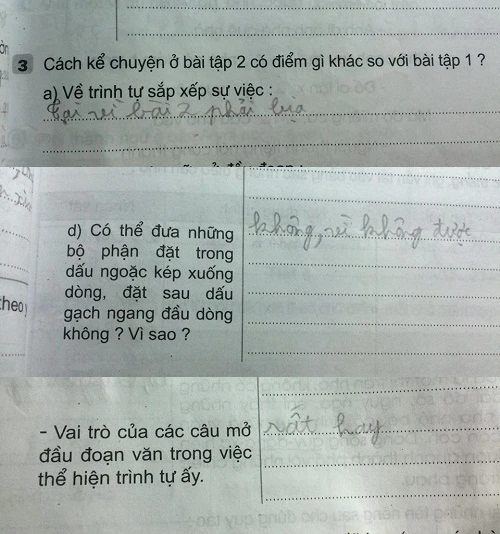 3 Cách kể chuyện ở bài tập 2 có điểm gì khác so với bài tập 1 ?
a) Về trình tự sắp xếp sự việc :
Tại vì bài 2 phải bịa
d) Có thể đưa những
không, vì không được
bộ phận đặt trong
dấu ngoặc kép xuống
dòng, đặt sau dấu
gạch ngang đầu dòng
không ? Vì sao ?
theo
- Vai trò của các câu mở
rất hay
đầu đoạn văn trong việc
thể hiện trình tự ấy.